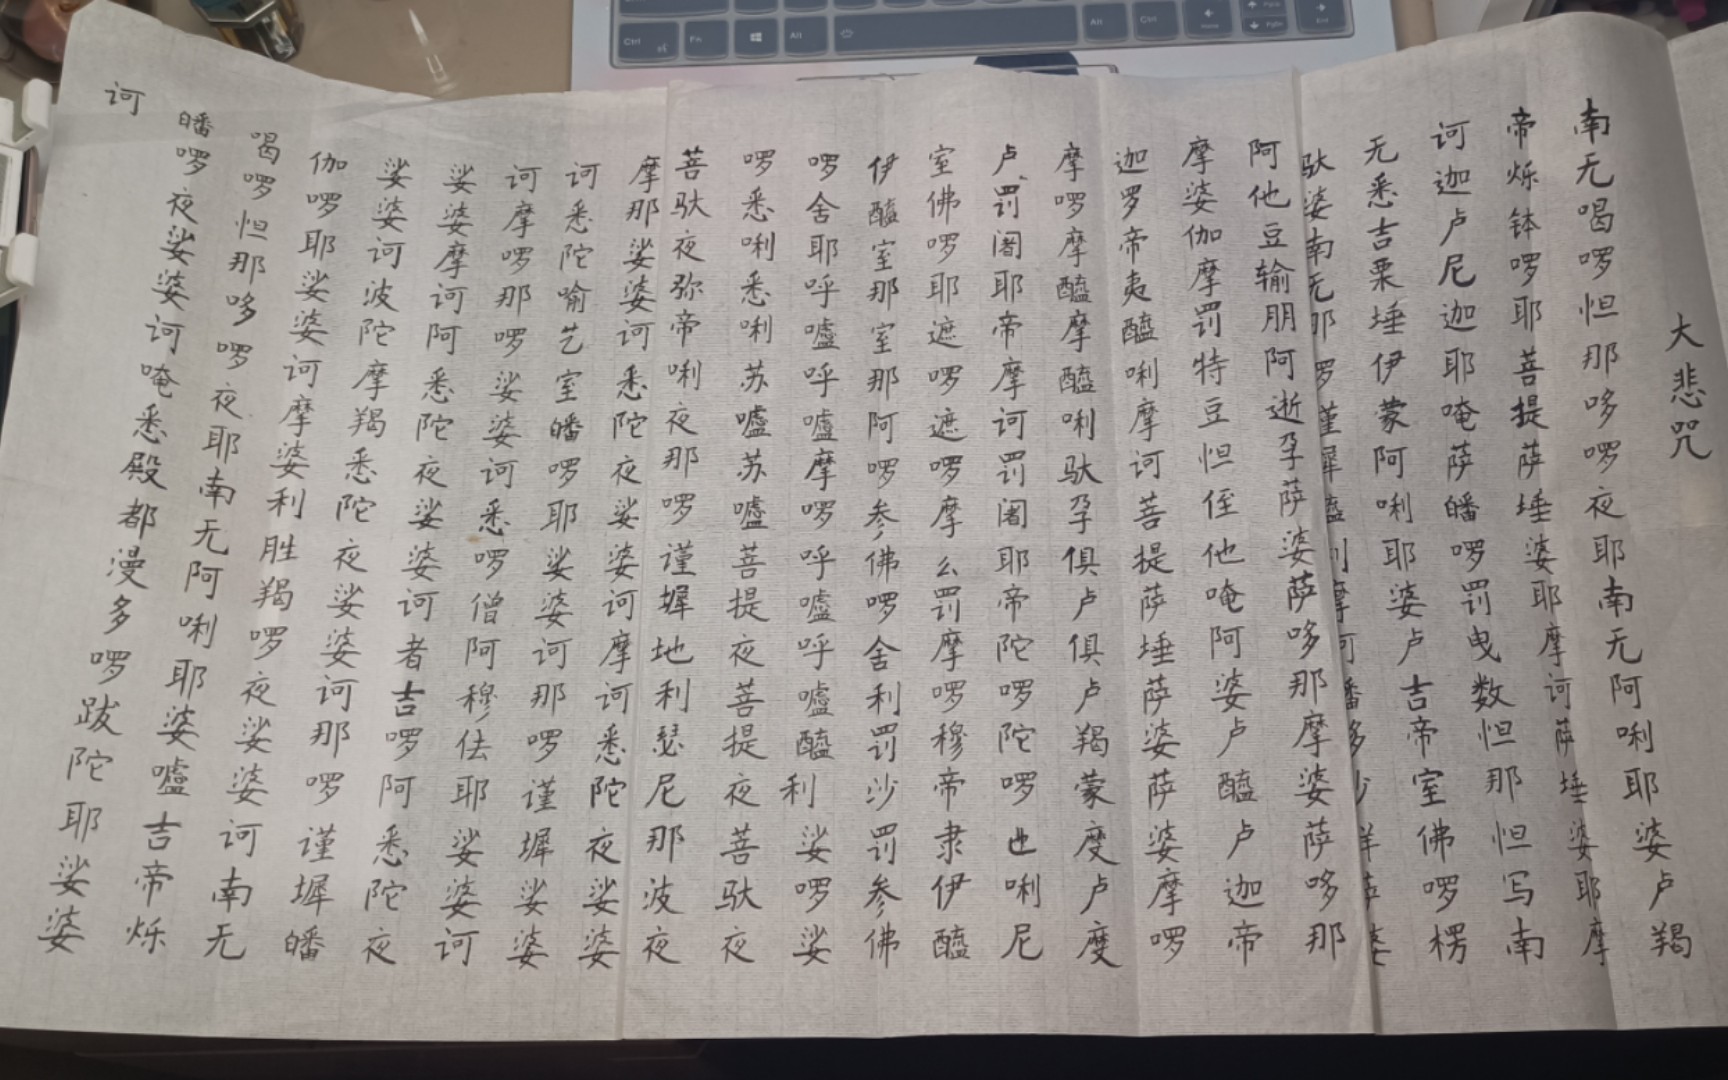 大悲咒
南无喝啰怛那哆啰夜耶南无阿唎耶婆卢羯
帝烁钵啰耶菩提萨埵婆耶摩诃萨埵婆耶摩
诃迦卢尼迦耶唵萨皤啰罚曳数怛那怛写南
无悉吉栗埵伊蒙阿唎耶婆卢吉帝室佛啰楞
驮婆南无那啰谨墀醯利摩诃皤多沙咩萨婆
阿他豆输朋阿逝孕萨婆萨哆那摩婆萨哆那
摩婆伽摩罚特豆怛侄他唵阿婆卢醯卢迦帝
迦罗帝夷醯唎摩诃菩提萨埵萨婆萨婆摩啰
摩啰摩醯摩醯唎驮孕俱卢俱卢羯蒙度卢度
卢罚阇耶帝摩诃罚阇耶帝陀啰陀啰地唎尼
室佛啰耶遮啰遮啰摩么罚摩啰穆帝隶伊醯
伊醯室那室那阿啰参佛啰舍利罚沙罚参佛
啰舍耶呼嚧呼嚧摩啰呼嚧呼嚧醯利娑啰娑
啰悉唎悉唎苏嚧苏嚧菩提夜菩提夜菩驮夜
菩驮夜弥帝唎夜那啰谨墀地利瑟尼那波夜
摩那娑婆诃悉陀夜娑婆诃摩诃悉陀夜娑婆
诃悉陀喻艺室皤啰耶娑婆诃那啰谨墀娑婆
诃摩啰那啰娑婆诃悉啰僧阿穆佉耶娑婆诃
娑婆摩诃阿悉陀夜娑婆诃者吉啰阿悉陀夜
娑婆诃波陀摩羯悉陀夜娑婆诃那啰谨墀皤
伽啰耶娑婆诃摩婆利胜羯啰夜娑婆诃南无
喝啰怛那哆啰夜耶南无阿唎耶婆嚧吉帝烁
皤啰夜娑婆诃唵悉殿都漫多啰跋陀耶娑婆
诃